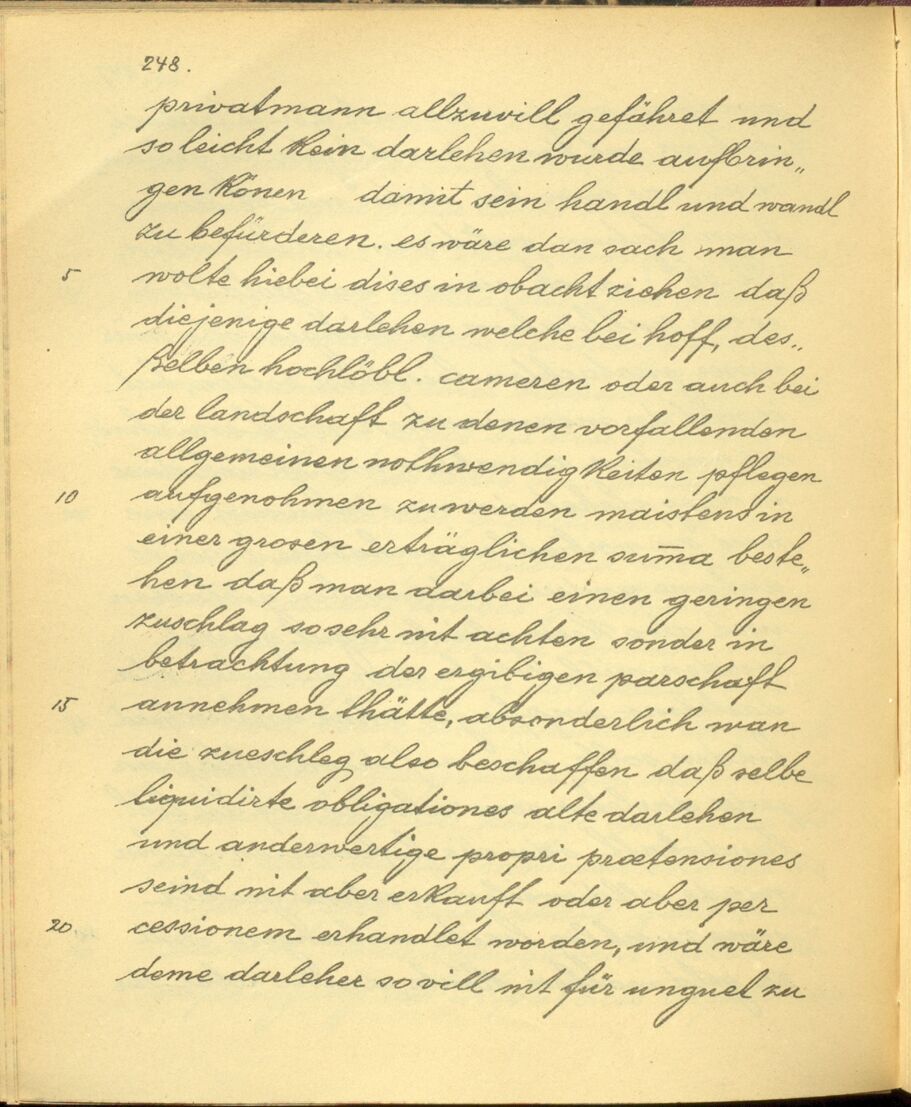 248.
privatmann allzuvill gefähret und
so leicht kein darlehen wurde aufbrin„
gen könen damit sein handl und wandl
zu befürderen. es wäre dan sach man
5 wolte hiebei dises in obacht ziehen daß
diejenige darlehen welche bei hoff, des„
ßelben hochlöbl. cameren oder auch bei
der landschaft zu denen vorfallenden
allgemeinen nothwendigkeiten pflegen
10 aufgenohmen zu werden maistens in
einer grosen erträglichen sum̄a beste„
hen daß man darbei einen geringen
zuschlag so sehr nit achten sonder in
betrachtung der ergibigen parschaft
15 annehmen thätte, absonderlich wan
die zueschleg also beschaffen daß selbe
liquidirte obligationes alte darlehen
und anderwertige propri prætensiones
seind nit aber erkauft oder aber per
20. cessionem erhandlet worden, und wäre
deme darleher so vill nit für unguet zu